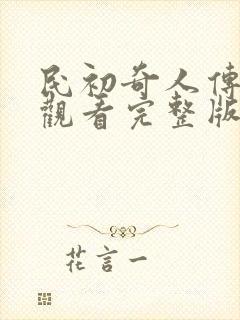 民初奇人傳
觀看完整版
花言一